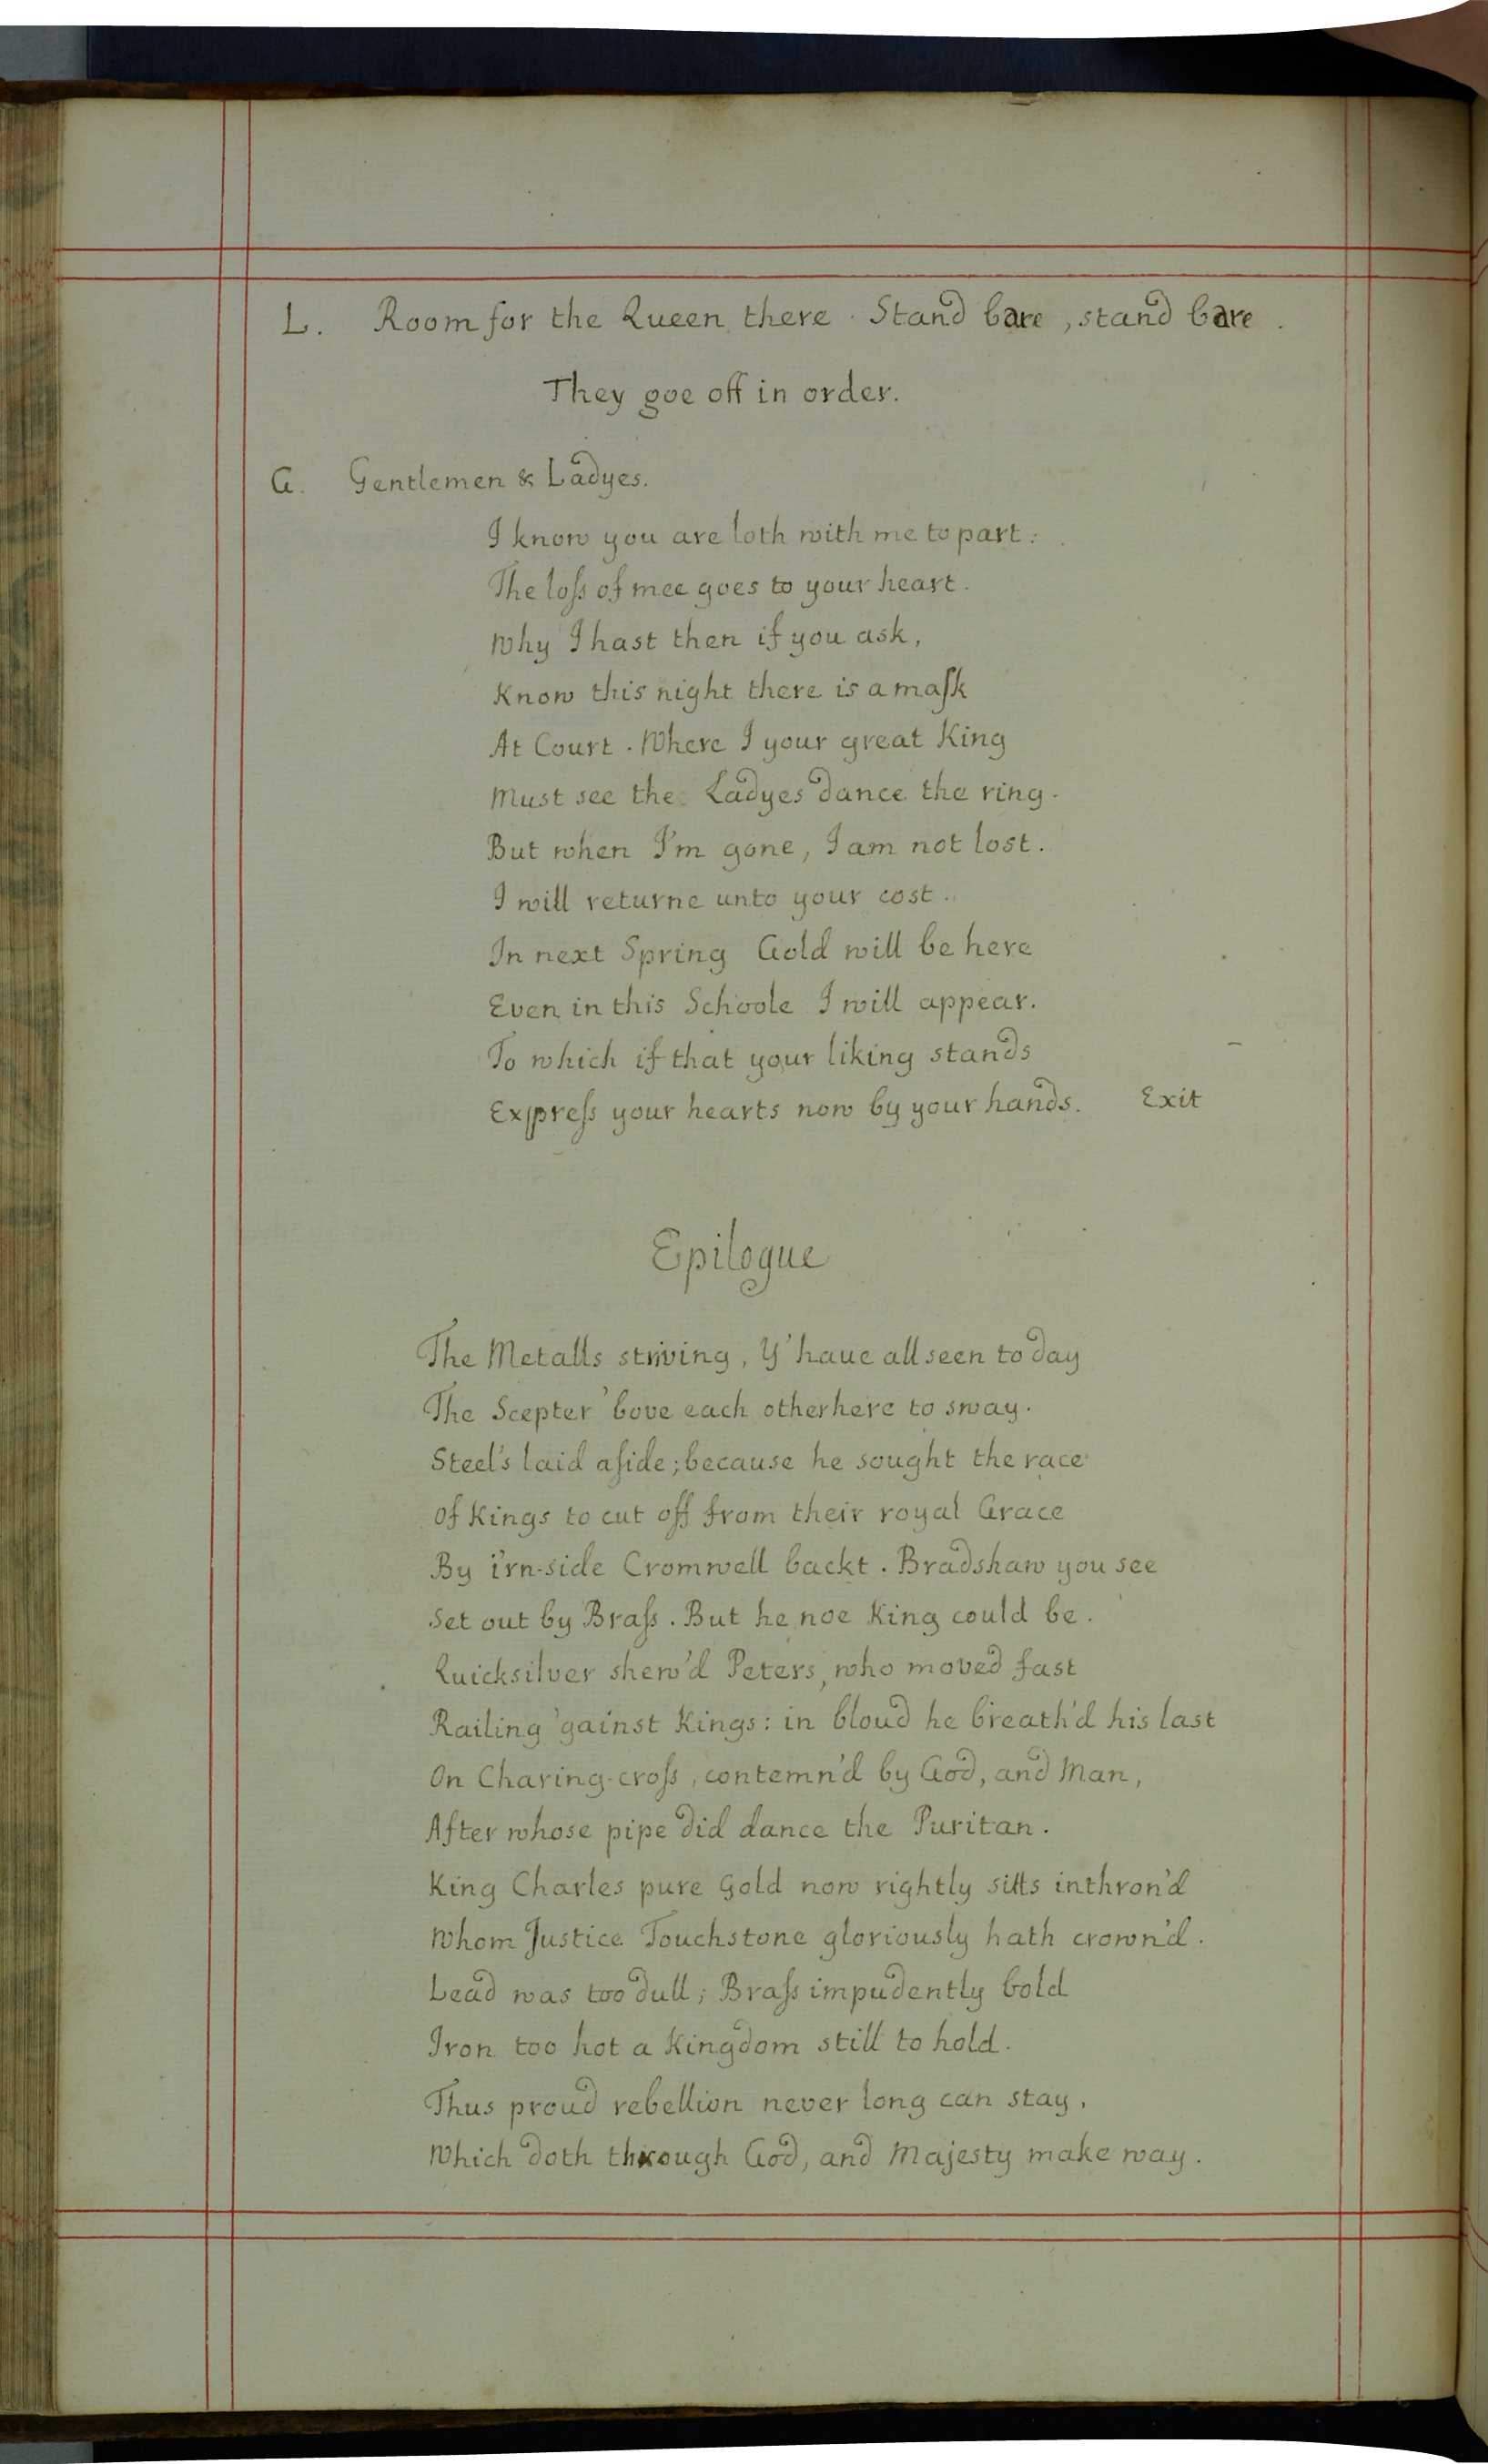 L. Room for the Queen there. Stand bare, stand bare.
They goe off in order.
G. Gentlemen & Ladyes.
I know you are loth with me to part:
The loſs of mee goes to your heart.
Why I hast then if you ask,
Know this night there is a maſk
At Court. Where I your great King
Must see the Ladyes dance the ring.
But when I'm gone, I am not lost.
I will returne unto your cost.
In next Spring Gold will be here
Even in this Schoole I will appear.
To which if that your liking stands
Expreſs your hearts now by your hands. Exit
Epilogue
The Metalls striving, Y' haue all seen to day
The Scepter 'bove each other here to sway.
Steel's laid aſide; because he sought the race
Of Kings to cut off from their royal Grace
By i'rn-side Cromwell backt. Bradshaw you see
Set out by Braſs. But he noe King could be.
Quicksilver shew'd Peters, who moved fast
Railing 'gainst Kings: in bloud he breath'd his last
On Charing-croſs, contemn'd by God, and Man,
After whose pipe did dance the Puritan.
King Charles pure Gold now rightly sitts inthron'd
Whom Justice Touchstone gloriously hath crown'd.
Lead was too dull; Braſs impudently bold
Iron too hot a Kingdom still to hold.
Thus proud rebellion never long can stay,
Which doth through God, and Majesty make way.